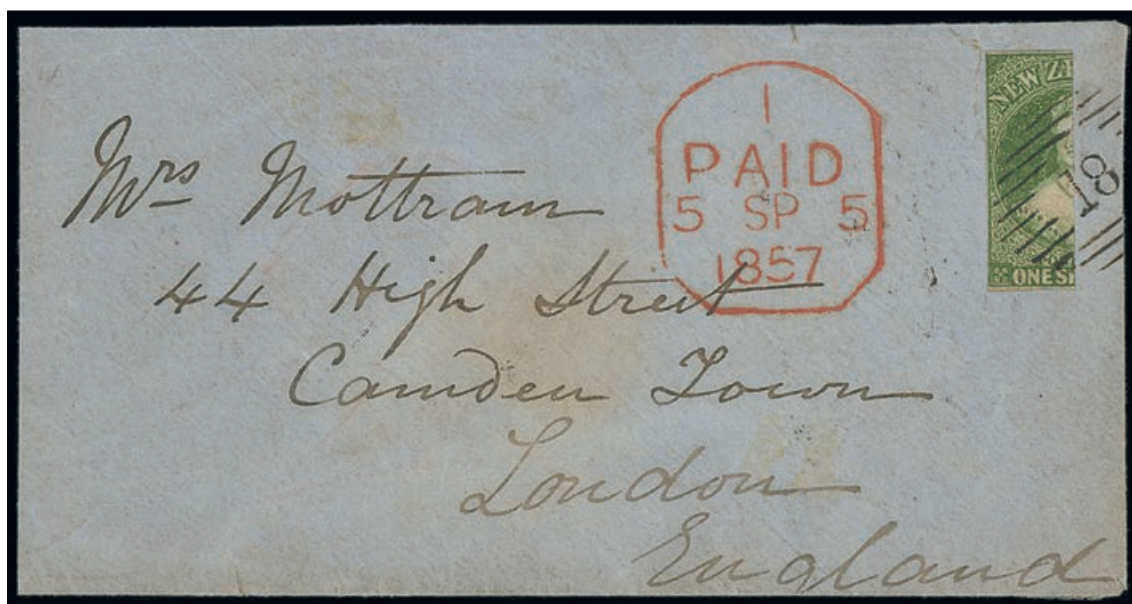 Mrs Mottram
44 High Street
Camden Town
London
England
1
PAID
5 SP 5
1857
NEW Z
18
ONE S